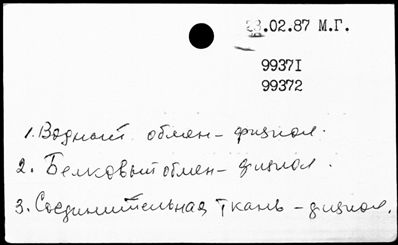 23.02.87 М.Г.
99371
99372
1. Водный обмен - физиол.
2. Белковый обмен - физиол.
3. Соединительная ткань - физиол.